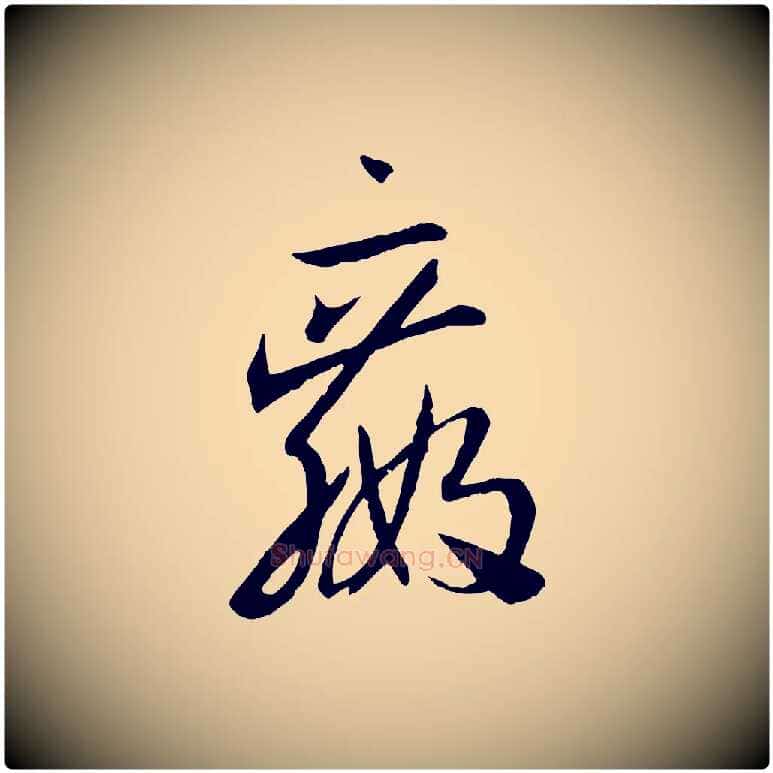 嬴
Shufawang.CN